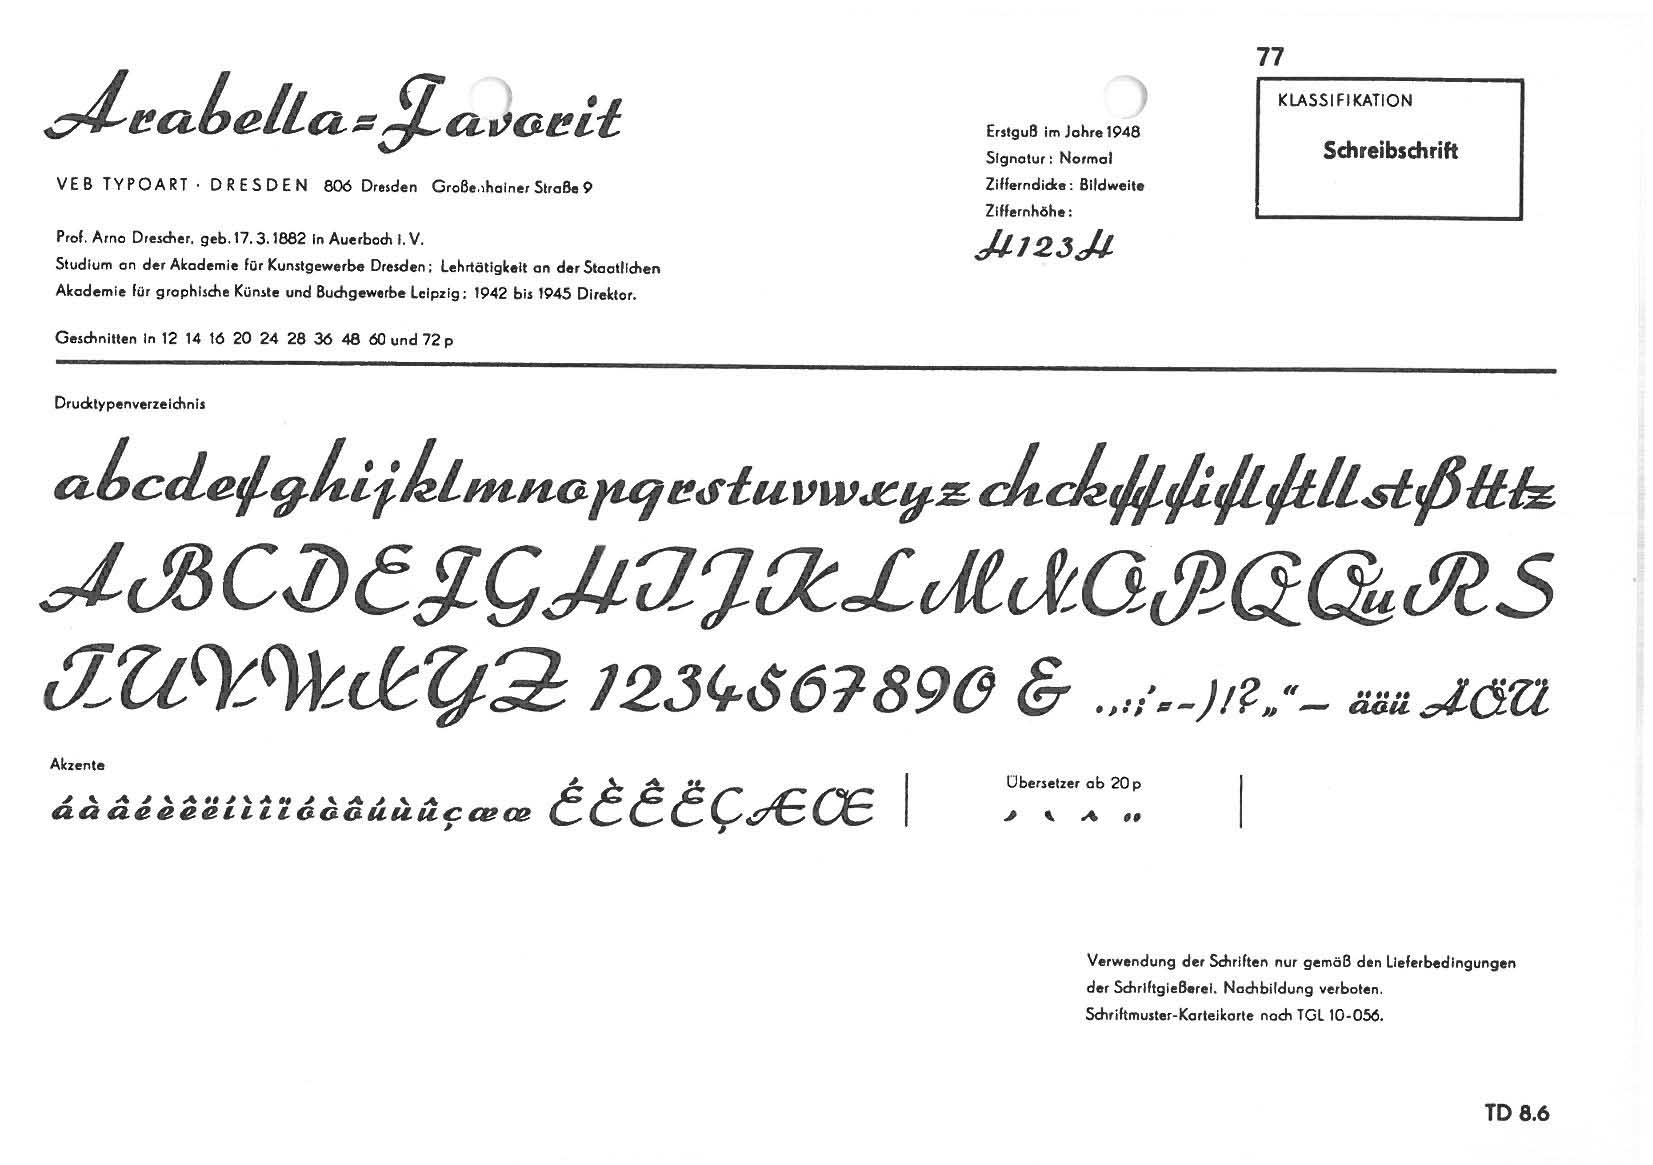 77
Arabella=Favorit
KLASSIFIKATION
Schreibschrift
VEB TYPOART · DRESDEN 806 Dresden Großenhainer Straße 9
Erstguß im Jahre 1948
Signatur: Normal
Zifferndicke: Bildweite
Ziffernhöhe:
H123H
Prof. Arno Drescher, geb. 17. 3. 1882 in Auerbach i. V.
Studium an der Akademie für Kunstgewerbe Dresden; Lehrtätigkeit an der Staatlichen
Akademie für graphische Künste und Buchgewerbe Leipzig; 1942 bis 1945 Direktor.
Geschnitten in 12 14 16 20 24 28 36 48 60 und 72 p
Drucktypenverzeichnis
abcdefghijklmnopqrstuvwxyz chckfffiflftllstßtttz
ABCDEFGHIJKLMNOPQQuRS
TUVWXYZ 1234567890 & .,:;'=-)!?„“— äöü ÄÖÜ
Akzente
áàâéèêëíìîïóòôúùûçæœ ÉÈÊËÇÆŒ
Übersetzer ab 20 p
´ ` ^ ¨
Verwendung der Schriften nur gemäß den Lieferbedingungen
der Schriftgießerei. Nachbildung verboten.
Schriftmuster-Karteikarte nach TGL 10-056.
TD 8.6